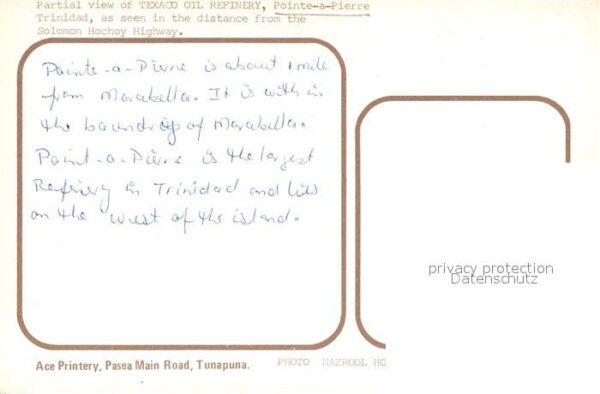 Partial view of TEXACO OIL REFINERY, Pointe-a-Pierre
Trinidad, as seen in the distance from the
Solomon Hochoy Highway.
Pointe-a-Pierre is about 1 mile
from Marabella. It is with in
the boundrys of Marabella.
Point-a-Pierre is the largest
Refinery in Trinidad and lies
on the west of the island.
privacy protection
Datenschutz
Ace Printery, Pasea Main Road, Tunapuna.
PHOTO NAZROOL HO